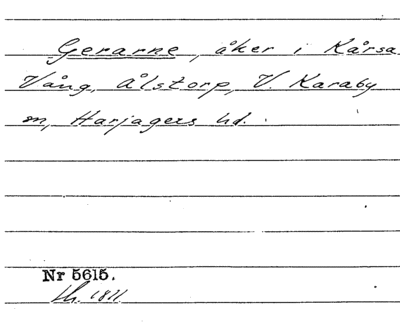 Gerarne, åker i Kårsa
Vång, Ålstorp, V. Karaby
m, Harjagers hd.
Nr 5615.
1811.